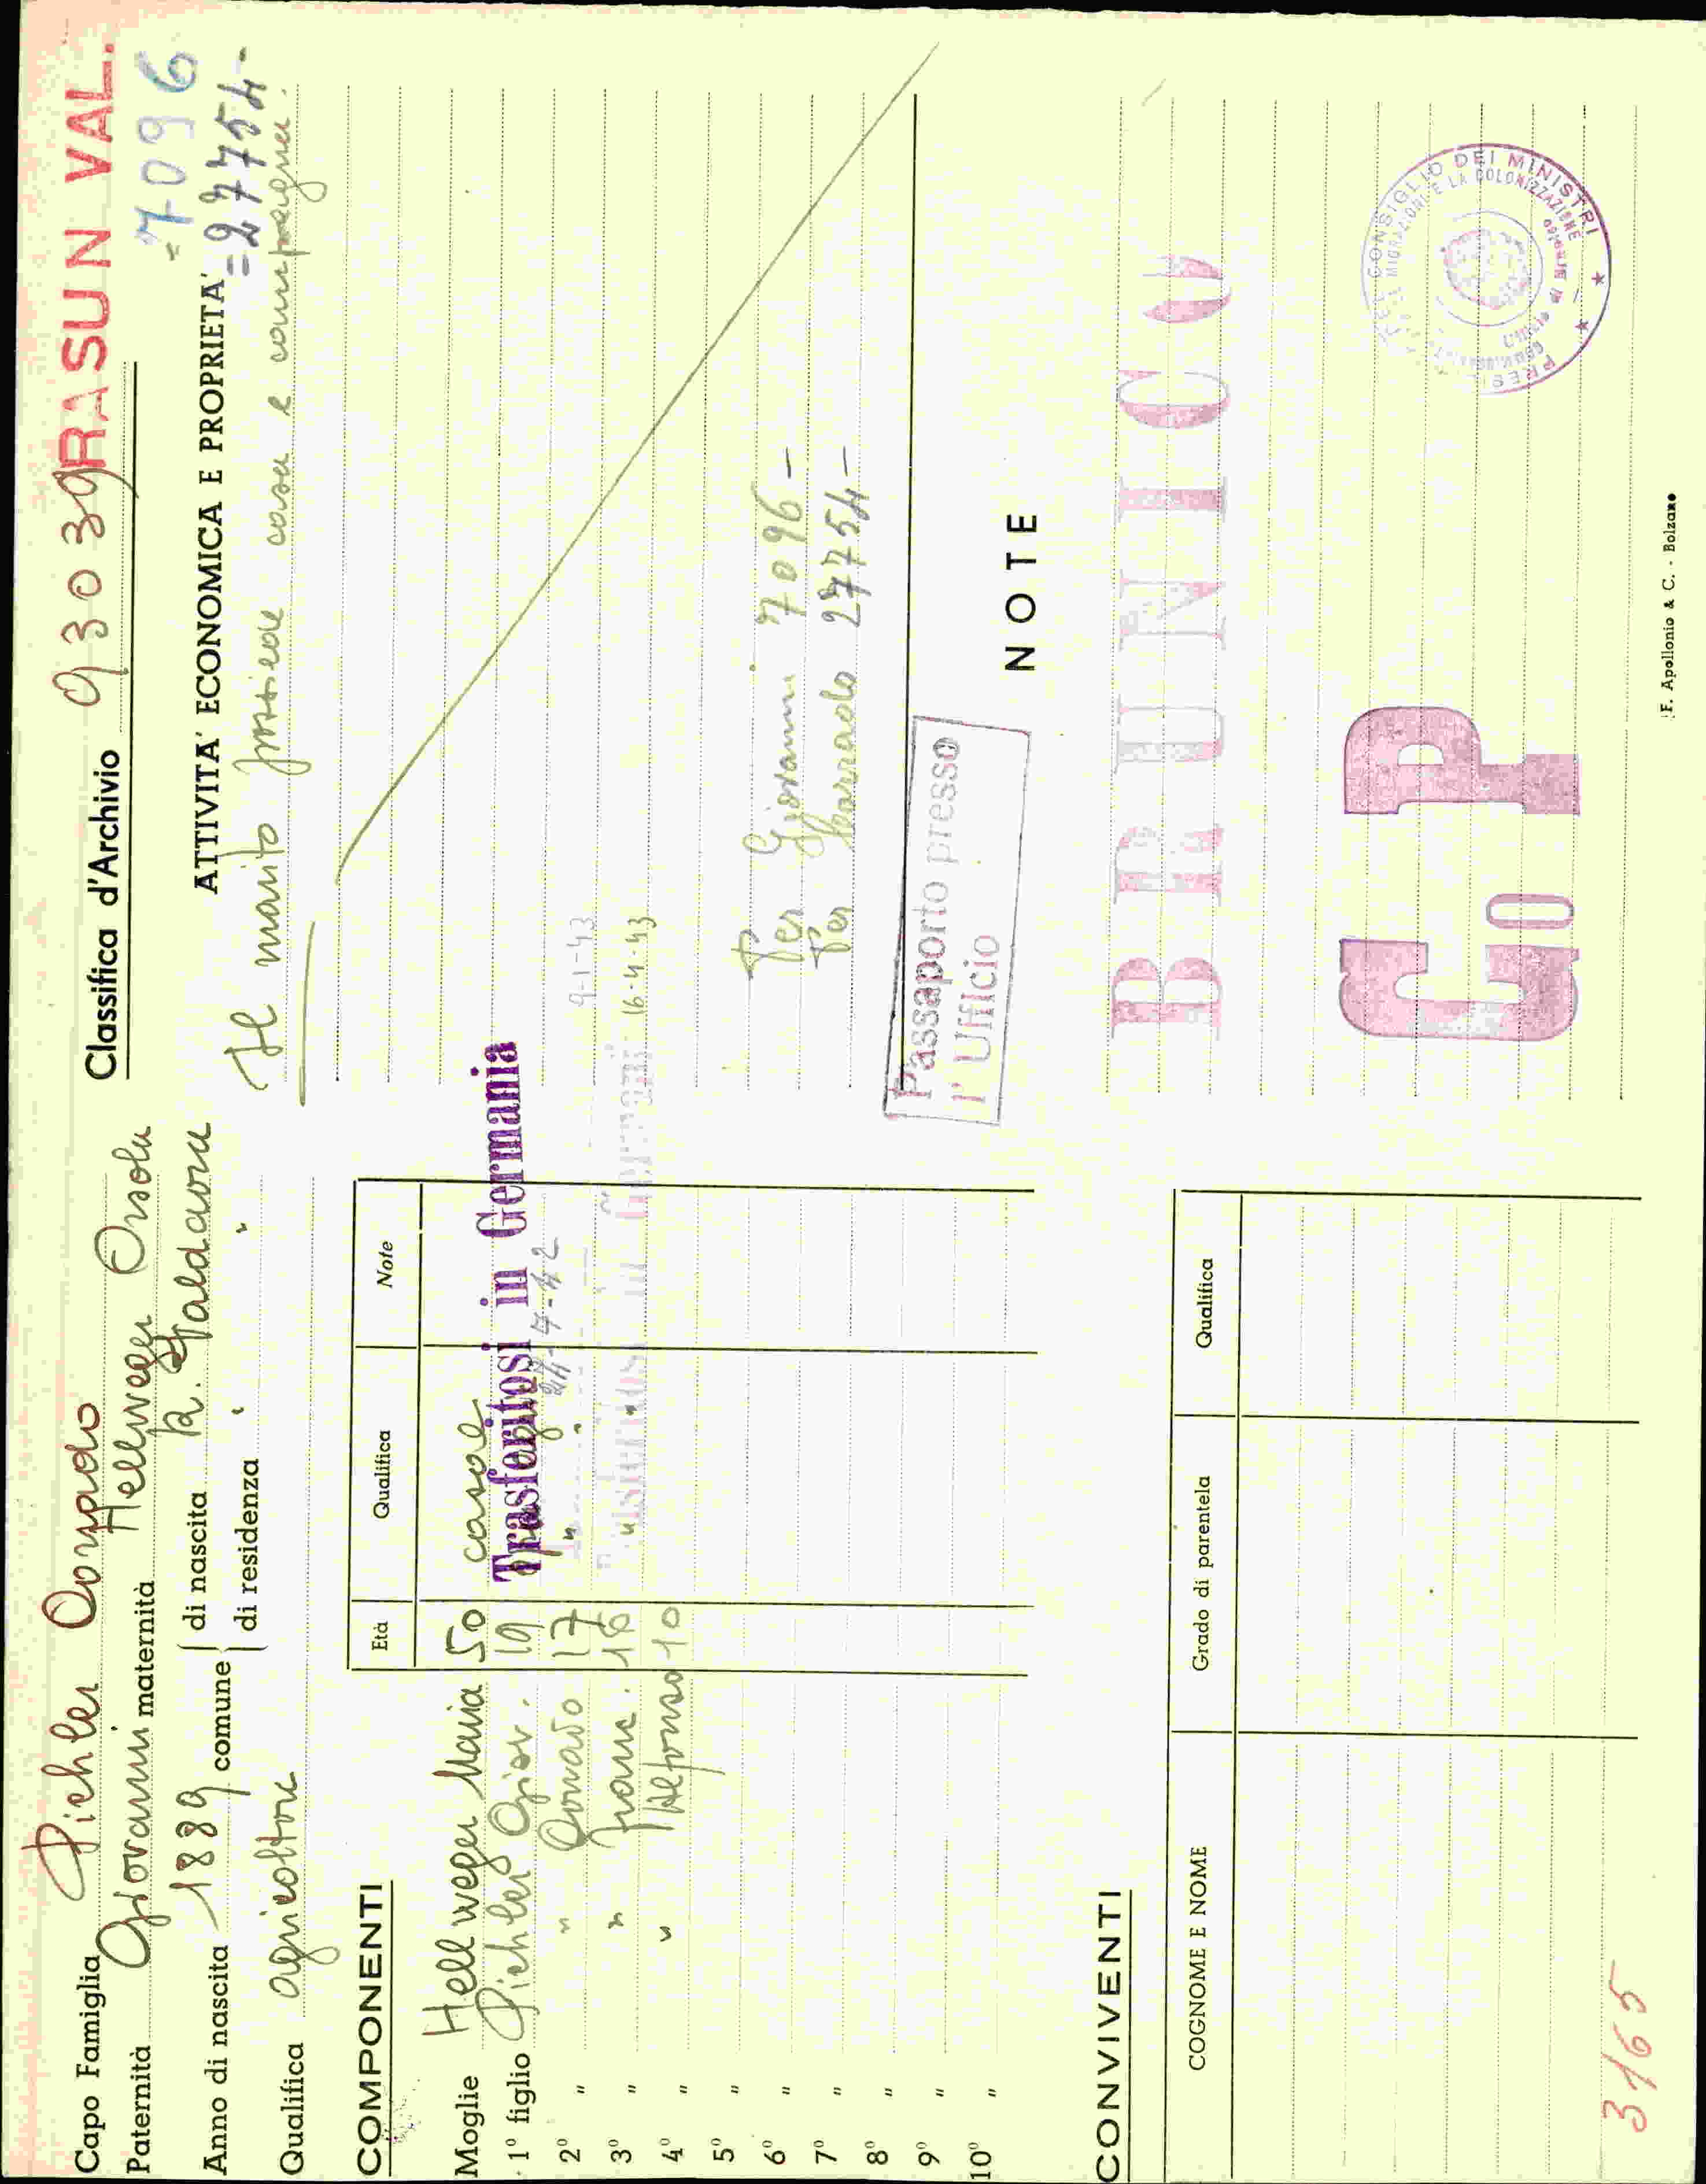 Capo Famiglia Pichler Corrado
Paternità Giovanni maternità Hellweger Orsola
Anno di nascita 1889 comune di nascita R. Valdaora
di residenza " "
Qualifica agricoltore
COMPONENTI
Età Qualifica Note
Moglie Hellweger Maria 50 casal.
1º figlio Pichler Giov. 19
Trasferitosi in Germania
2º " " Corrado 17 " " 24-7-42
9-1-43
3º " " Franc. 16 " "
Trasferitosi in Germania 16-4-43
4º " " Alfonso 10
5º "
6º "
7º "
8º "
9º "
10º "
CONVIVENTI
COGNOME E NOME Grado di parentela Qualifica
3165
Classifica d'Archivio 93039 RASUN VAL.
=7096
ATTIVITA' ECONOMICA E PROPRIETA' =27754-
Il marito possiede casa e campagna.
Per Giovanni 7096 -
Per Corrado 27754 -
Passaporto presso
l'Ufficio
NOTE
BRUNICO
Go P
PRES. DEL CONSIGLIO DEI MINISTRI
MIGRAZIONI E LA COLONIZZAZIONE
Ufficio di Brunico
F. Apollonio & C. - Bolzano